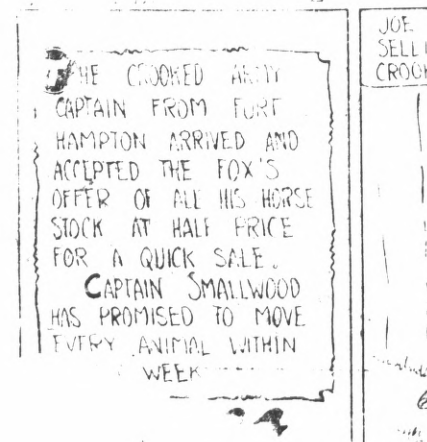 THE CROOKED ARMY
CAPTAIN FROM FORT
HAMPTON ARRIVED AND
ACCEPTED THE FOX'S
OFFER OF ALL HIS HORSE
STOCK AT HALF PRICE
FOR A QUICK SALE.
CAPTAIN SMALLWOOD
HAS PROMISED TO MOVE
EVERY ANIMAL WITHIN
WEEK
JOE